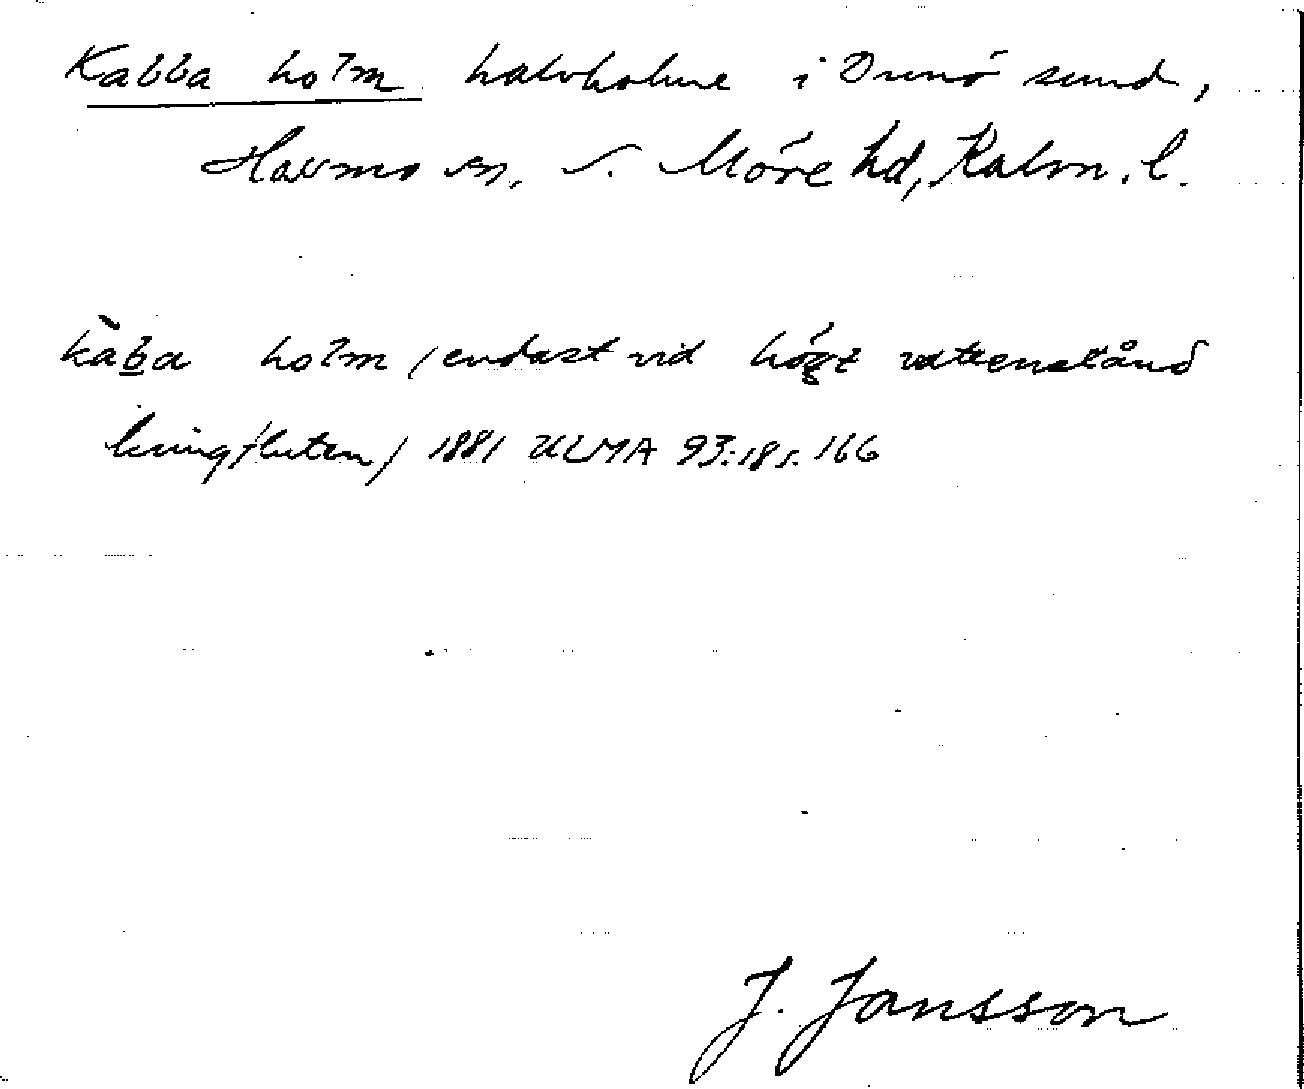 Kabba holm halvholme i Drunö sund,
Hossmo sn, S. Möre hd, Kalm. l.
kàba holm /endast vid högt vattenstånd
kringfluten/ 1881 ULMA 93:18 s. 166
J. Jansson